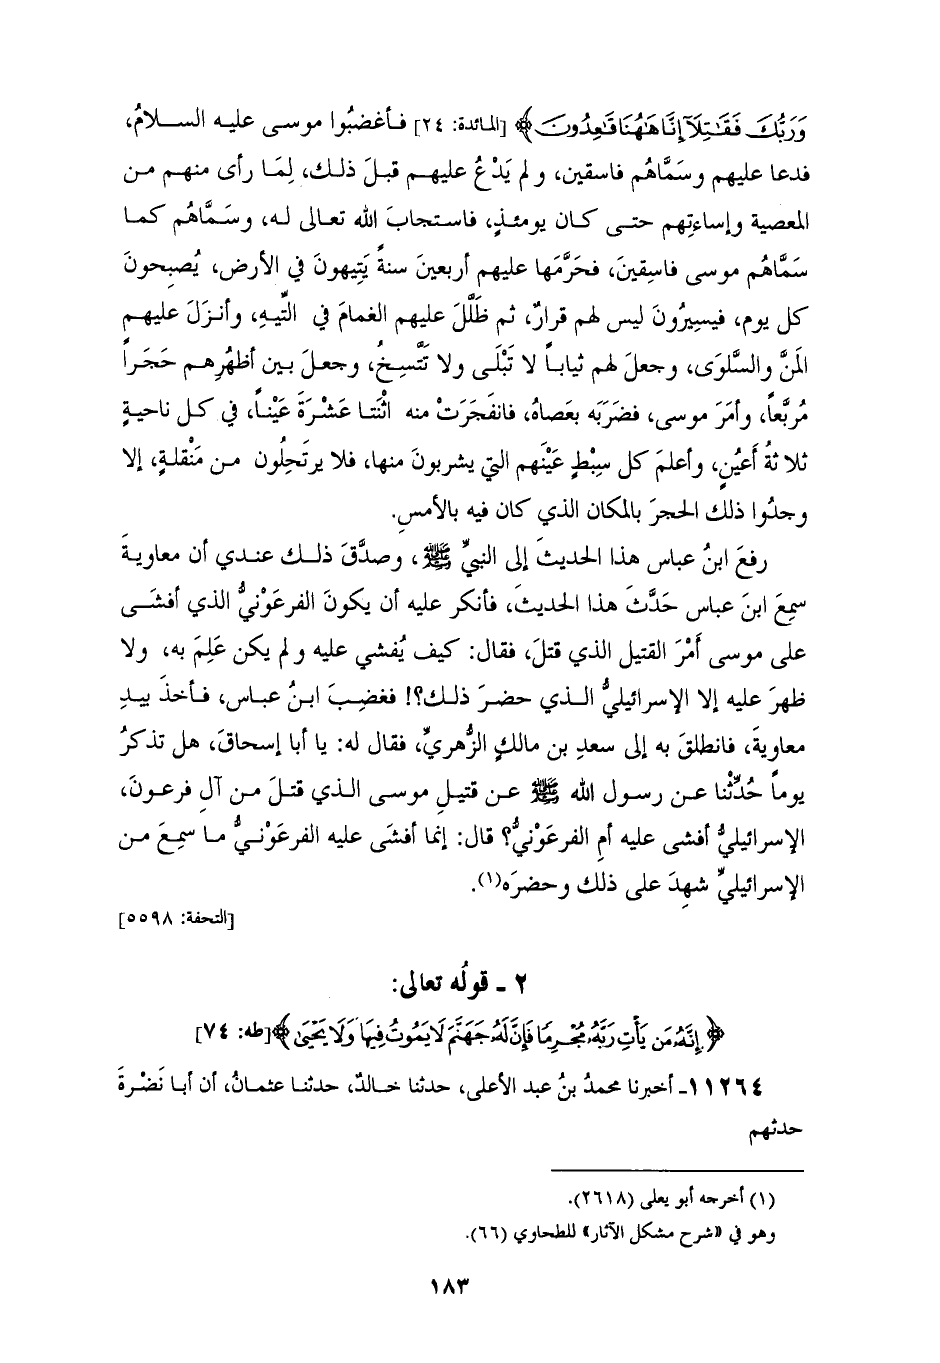 وَرَبُّكَ فَقَٰتِلَآ إِنَّا هَٰهُنَا قَٰعِدُونَ﴾ [المائدة: ٢٤] فأغضبُوا موسى عليه السلامُ،
فدعا عليهم وسَمَّاهُم فاسقين، ولم يَدْعُ عليهم قبلَ ذلك، لِمَا رأى منهم من
المعصية وإساءتِهم حتى كان يومئذٍ، فاستجابَ الله تعالى له، وسَمَّاهُم كما
سَمَّاهُم موسى فاسِقينَ، فحَرَّمَها عليهم أربعينَ سنةً يَتِيهونَ في الأرض، يُصبِحونَ
كل يوم، فيسِيرُونَ ليس لهم قرارٌ، ثم ظَلَّلَ عليهم الغمامَ في التِّيهِ، وأنزَلَ عليهم
المَنَّ والسَّلوَى، وجعلَ لهم ثياباً لا تَبْلَى ولا تَتَّسِخُ، وجعلَ بين أظهُرِهم حَجَراً
مُربَّعاً، وأمَرَ موسى، فضَرَبَه بعَصاهُ، فانفَجَرَتْ منه اثْنَتا عَشْرَةَ عَيْناً، في كل ناحيةٍ
ثلاثةُ أَعيُنٍ، وأعلمَ كل سِبْطٍ عَيْنَهم التي يشربونَ منها، فلا يرتَحِلُون من مَنْقلةٍ، إلا
وجدُوا ذلك الحجرَ بالمكان الذي كان فيه بالأمسِ.
رفعَ ابنُ عباس هذا الحديثَ إلى النبيِّ ﷺ، وصدَّقَ ذلك عندي أن معاويةَ
سمِعَ ابنَ عباس حَدَّثَ هذا الحديثَ، فأنكر عليه أن يكونَ الفرعَوْنيُّ الذي أفشَى
على موسى أَمْرَ القتيل الذي قتلَ، فقال: كيف يُفشي عليه ولم يكن عَلِمَ به، ولا
ظهرَ عليه إلا الإسرائيليُّ الذي حضرَ ذلك؟! فغضِبَ ابنُ عباس، فأخذَ بيدِ
معاويةَ، فانطلقَ به إلى سعدِ بن مالكٍ الزُّهريِّ، فقال له: يا أبا إسحاقَ، هل تذكرُ
يوماً حُدِّثْنا عن رسول الله ﷺ عن قتيلِ موسى الذي قتلَ من آلِ فرعونَ،
الإسرائيليُّ أفشى عليه أمِ الفرعَوْنيُّ؟ قال: إنما أفشَى عليه الفرعَوْنيُّ ما سمِعَ من
الإسرائيليِّ شهِدَ على ذلك وحضرَه(١).
[التحفة: ٥٥٩٨]
٢ ـ قولُه تعالى:
﴿إِنَّهُۥ مَن يَأْتِ رَبَّهُۥ مُجْرِمًا فَإِنَّ لَهُۥ جَهَنَّمَ لَا يَمُوتُ فِيهَا وَلَا يَحْيَىٰ﴾[طه: ٧٤]
١١٢٦٤ـ أخبرنا محمدُ بنُ عبد الأعلى، حدثنا خالدٌ، حدثنا عثمانُ، أن أبا نَضْرةَ
حدثهم
(١) أخرجه أبو يعلى (٢٦١٨).
وهو في «شرح مشكل الآثار» للطحاوي (٦٦).
١٨٣